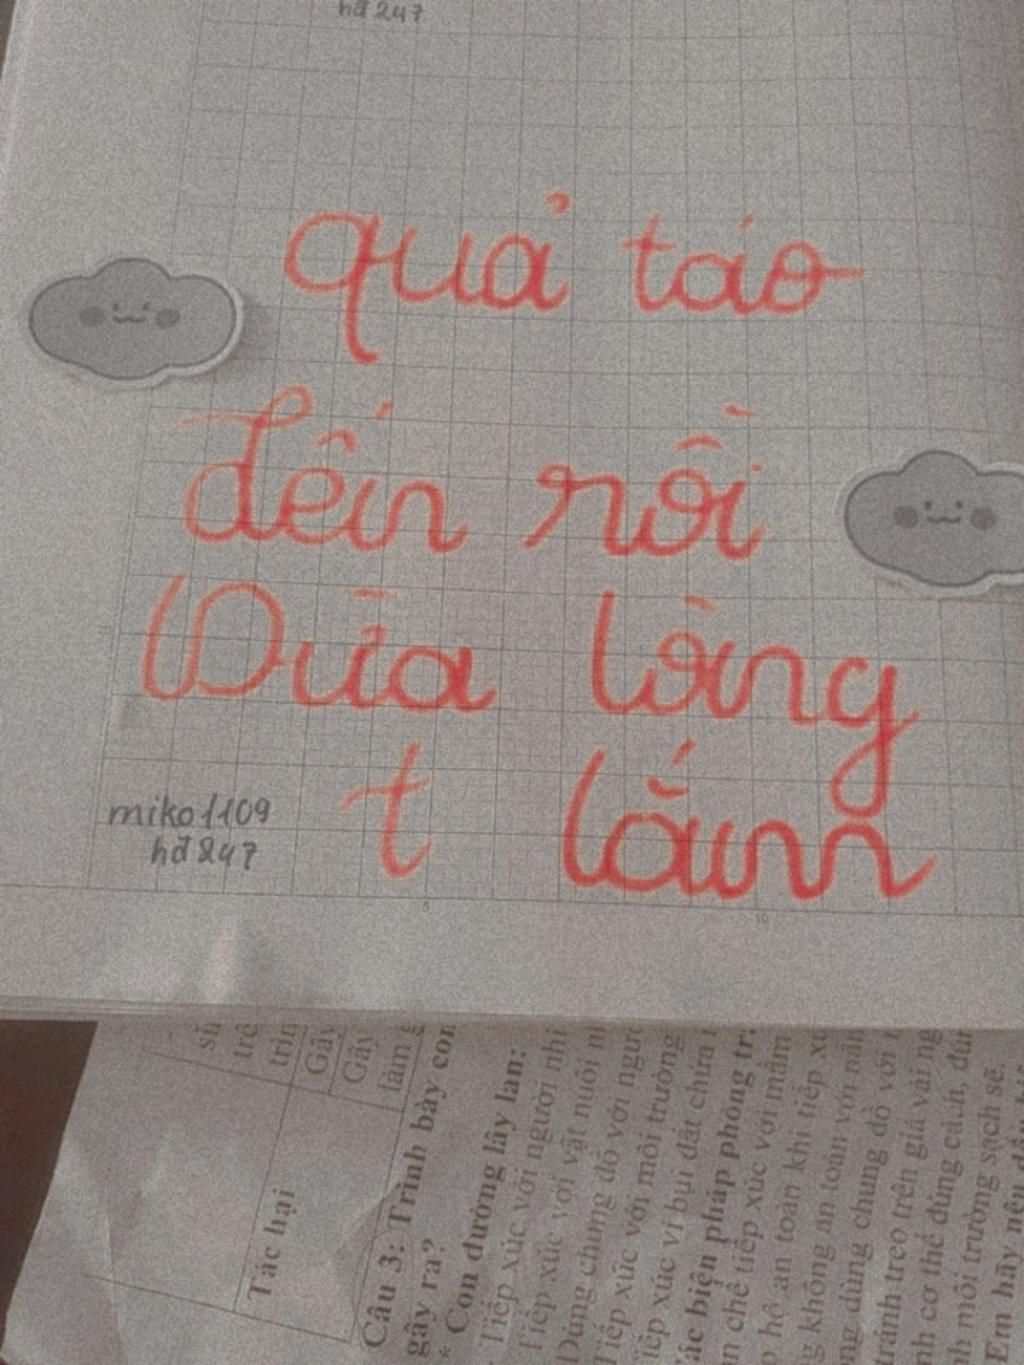 hđ 247
quả táo
đến rồi
Vừa lòng
t lắm
miko1109
hđ 247
Tác hại
Gây
Gây
làm g
Câu 3: Trình bày con
gây ra?
* Con đường lây lan:
Tiếp xúc với người nhi
Tiếp xúc với vật nuôi n
Dùng chung đồ với ngư
Tiếp xúc với môi trường
iếp xúc vì bụi đất chứa
ác biện pháp phòng tr
n chế tiếp xúc với mầm
p hê an toàn khi tiếp x
g không an toàn với nấn
ng dùng chung đồ với
tránh treo trên giá vải ng
nh cơ thể đúng cách, đún
h môi trường sạch sẽ.
Em hãy nêu